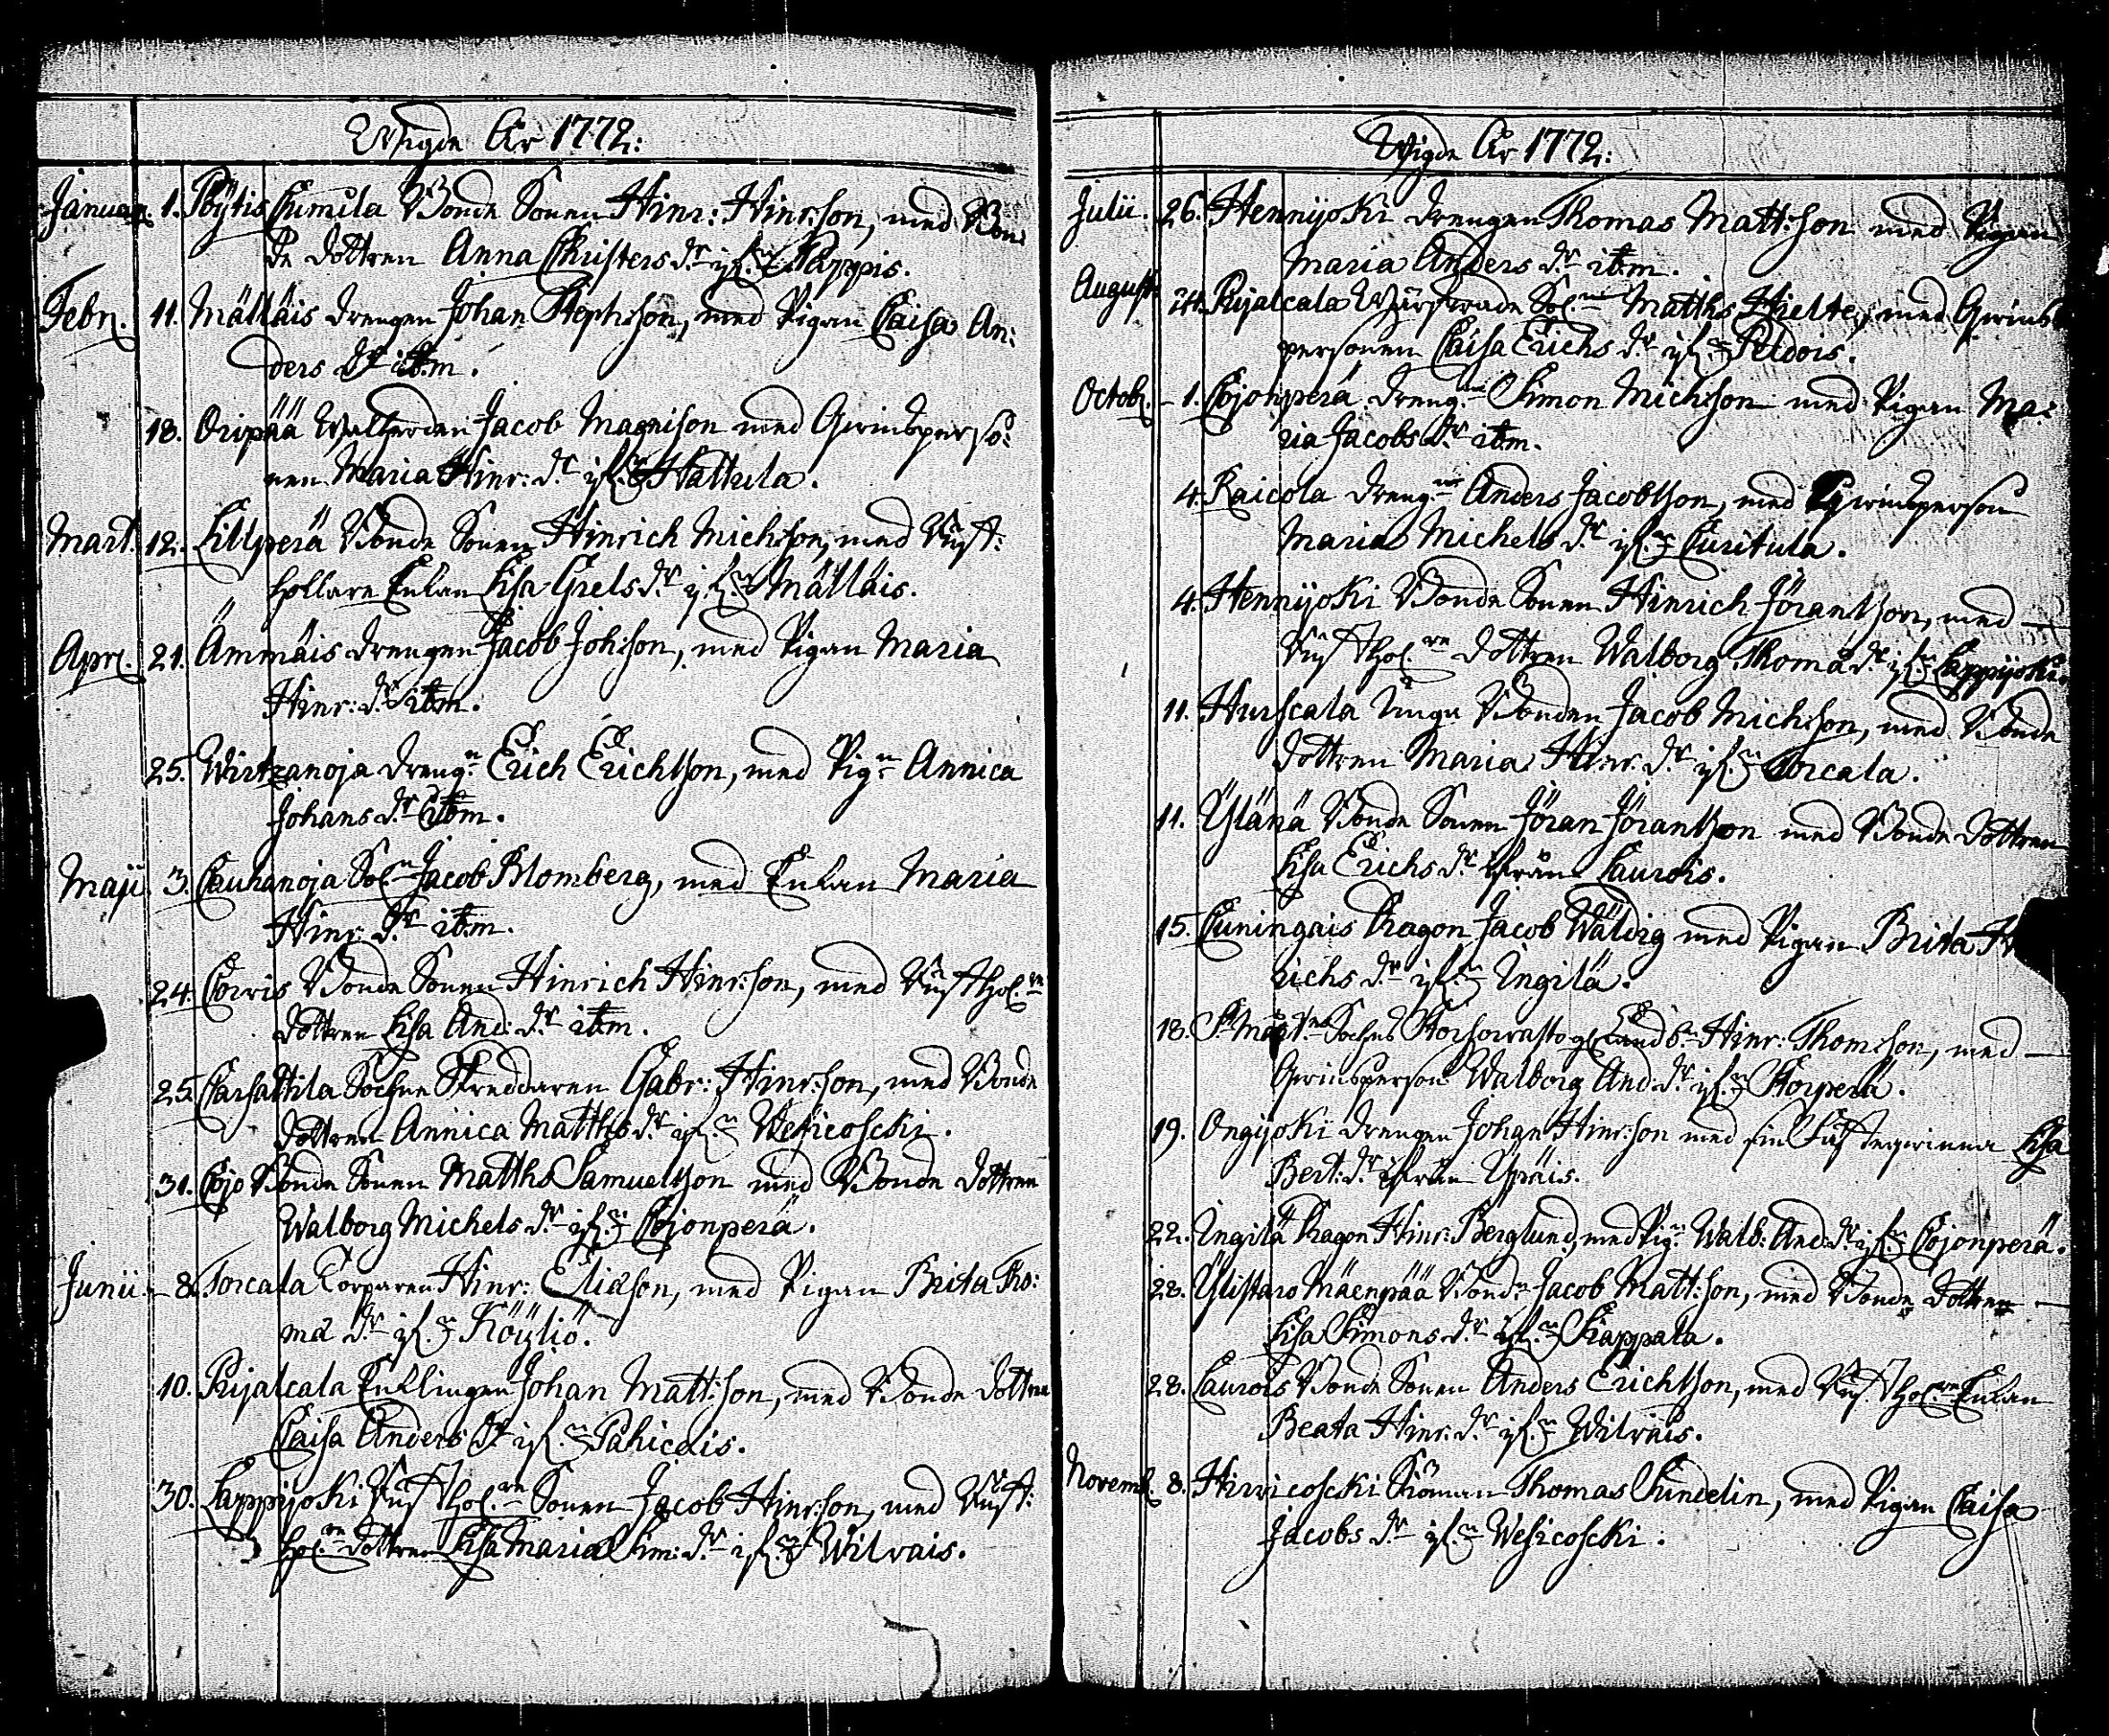 Wigde År 1772:
Januar. 1. Pöÿtis Cumila Bonde Sonen Hinr: Hinr:son, med Bon:
de dottren Anna Christers dr. ifrn Nappis.
Febr. 11. Mälläis drengen Johan Steph:son, med Pigan Caisa An:
ders dr. ib:m.
18. Oripää Jacob Magnison med Qwinsperso:
nen Maria Hinr: dr. ifrn Hallula.
Mart. 12. Lillperä Bonde Sonen Hinrich Mich:son, med Rust:
hollare Enkan Lisa Grels dr. ifrn Mälläis.
Apri. 21. Ämmäis drengen Jacob Joh:son, med Pigan Maria
Hinr: dr. ib:m.
25. Wirtzanoja drengn Erich Erichsson, med Pign Annica
Johans dr. ib:m.
Maji. 3. Cauhanoja Soln Jacob Blomberg, med Enkan Maria
Hinr: dr. ib:m.
24. Corvis Bonde Sonen Hinrich Hinr:son, med Rusthol:re
dottren Lisa And: dr. ib:m.
25. Carhattila Sochne Skreddaren Gabr: Hinr:son, med Bonde
dottren Annica Matths dr. ifrn Wesicoscki.
31. Cojo Bonde Sonen Matths Samuelsson med Bonde dottren
Walborg Michels dr. ifrn Cojonperä.
Junii. 8. Torcala Torparen Hinr: Eliæson, med Pigan Brita Tho:
mä dr. ifrn Köÿliö.
10. Rijalcala Enklingen Johan Matt:son, med Bonde dottren
Caisa Anders dr. ifrn Pahicais.
30. Lappijoki Rusthol:re Sonen Jacob Hinr:son, med Rust:
hol:re dottren Lisa Maria Sim: dr. ifrn Wilvais.
Wigde År 1772:
Julii. 26. Hennijoki drengen Thomas Matt:son med Pigan
Maria Anders dr. ib:m.
August. 24. Rijalcala Wärfwade Soln Matths Hielte, med Qwins
personen Caisa Erichs dr. ifrn Peldois.
Octob. 1. Cojonperä drengn Simon Mich:son med Pigan Ma:
ria Jacobs dr. ib:m.
4. Raicola drengn Anders Jacobsson, med Qwinsperson
Maria Michels dr. ifrn Curitula.
4. Hennijoki Bonde Sonen Hinrich Jöransson, med
Rusthol:re dottren Walborg Thomä dr. ifrn Lappijoki.
11. Hurscala Unga Bonden Jacob Mich:son, med Bonde
dottren Maria Hinr: dr. ifrn Torcala.
11. Ÿlänä Bonde Sonen Jöran Jöransson med Bonde dottren
Lisa Erichs dr. ifrån Laurois.
15. Cuningais Dragon Jacob Wäldig med Pigan Brita
richs dr. ifrn Ingilä.
18. St. Mårt:ns Sochns Hinr: Thom:son, med
Qwinsperson Walborg And: dr. ifrn Korperä.
19. Ongijoki drengen Johan Hinr:son med sin Fästeqwinna Lisa
Bert: dr. ifrån Ÿpäis.
22. Ingilä Dragon Hinr: Berglund, med Pign Walb: And: dr. ifrn Cojonperä.
28. Ÿlistaro Mäenpää Bonden Jacob Matt:son, med Bonde dottren
Lisa Simons dr. ifrn Kappala.
28. Laurois Bonde Sonen Anders Erichsson, med Rusthol:re Enkan
Beata Hinr: dr. ifrn Wilvais.
Novemb. 8. Hirvicoscki Thomas Sundelin, med Pigan Caisa
Jacobs dr. ifrn Wesicoscki.